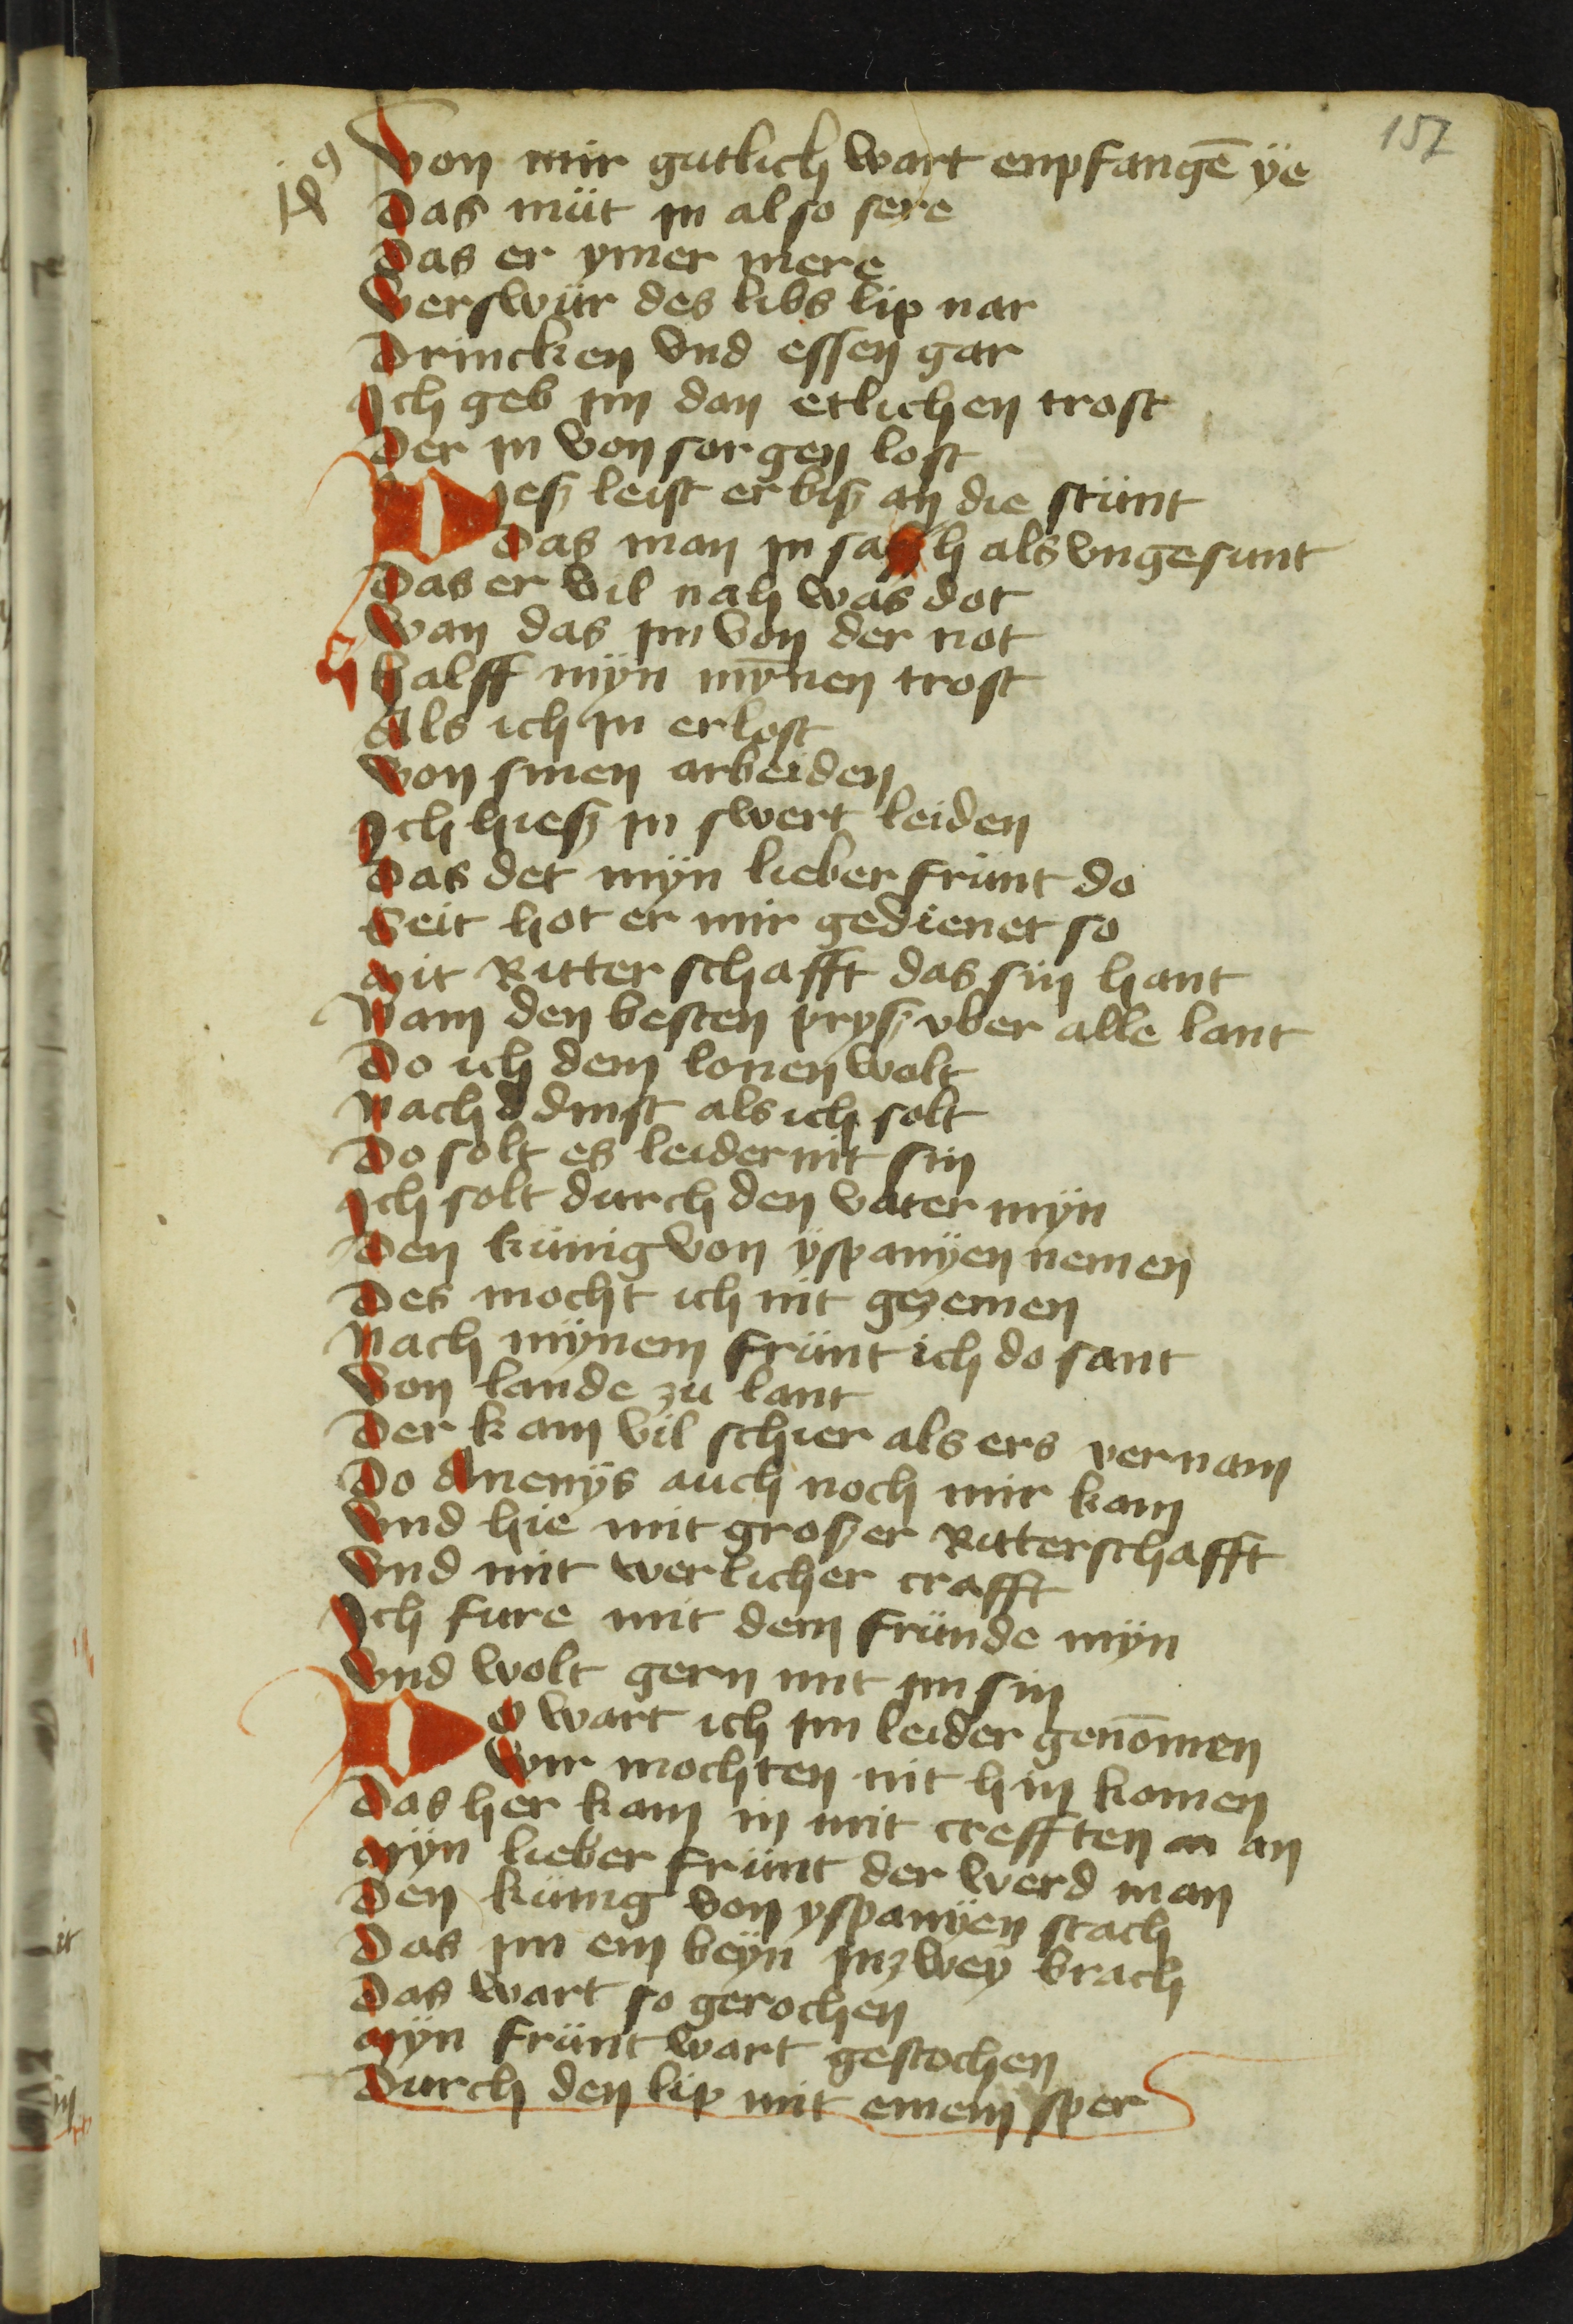 157
Von mir gutlich wart enpfangē ÿe
Das müt in also sere
Das er ymer mere
Verswür des libs lip nar
Drincken vnd essen gar
Ich geb im dan etlichen trost
Der in von sorgen lost
Dieß leist er biß an die stünt
Das man in sach als vngesunt
Das er vil nah was dot
Wan das im von der not
Halff mÿn mȳnen trost
Als ich in erlost
Von sinen arbeiden
Ich hieß in swert leiden
Das det mÿn lieber frünt do
Seit hot er mir gedienet so
Mit Ritterschafft das sin hant
Nam den besten pryß vber alle lant
Do ich dem lonen wolt
Nach dinst als ich solt
Do solt es leider nit sin
Ich solt durch den vater mÿn
Den künig von ÿspanÿen nemen
Des mocht ich nit gezemen
Nach mÿnem frünt ich do sant
Von lande zu lant
Der kam vil schier als ers vernam
Do Anenÿs auch noch mir kam
Vnd hie mit großer Ritterschafft
Vnd mit werlicher crafft
Ich fure mit dem fründe mÿn
Vnd wolt gern mit im sin
Do wart ich im leider genōmen
Wir mochten nit hin komen
Das her kam in mit crefften an
Mÿn lieber frünt der werd man
Den künig von yspanÿen stach
Das im ein beÿn inzweÿ brach
Das wart so gerochen
Mÿn frünt wart gestochen
Durch den lip mit einem sper